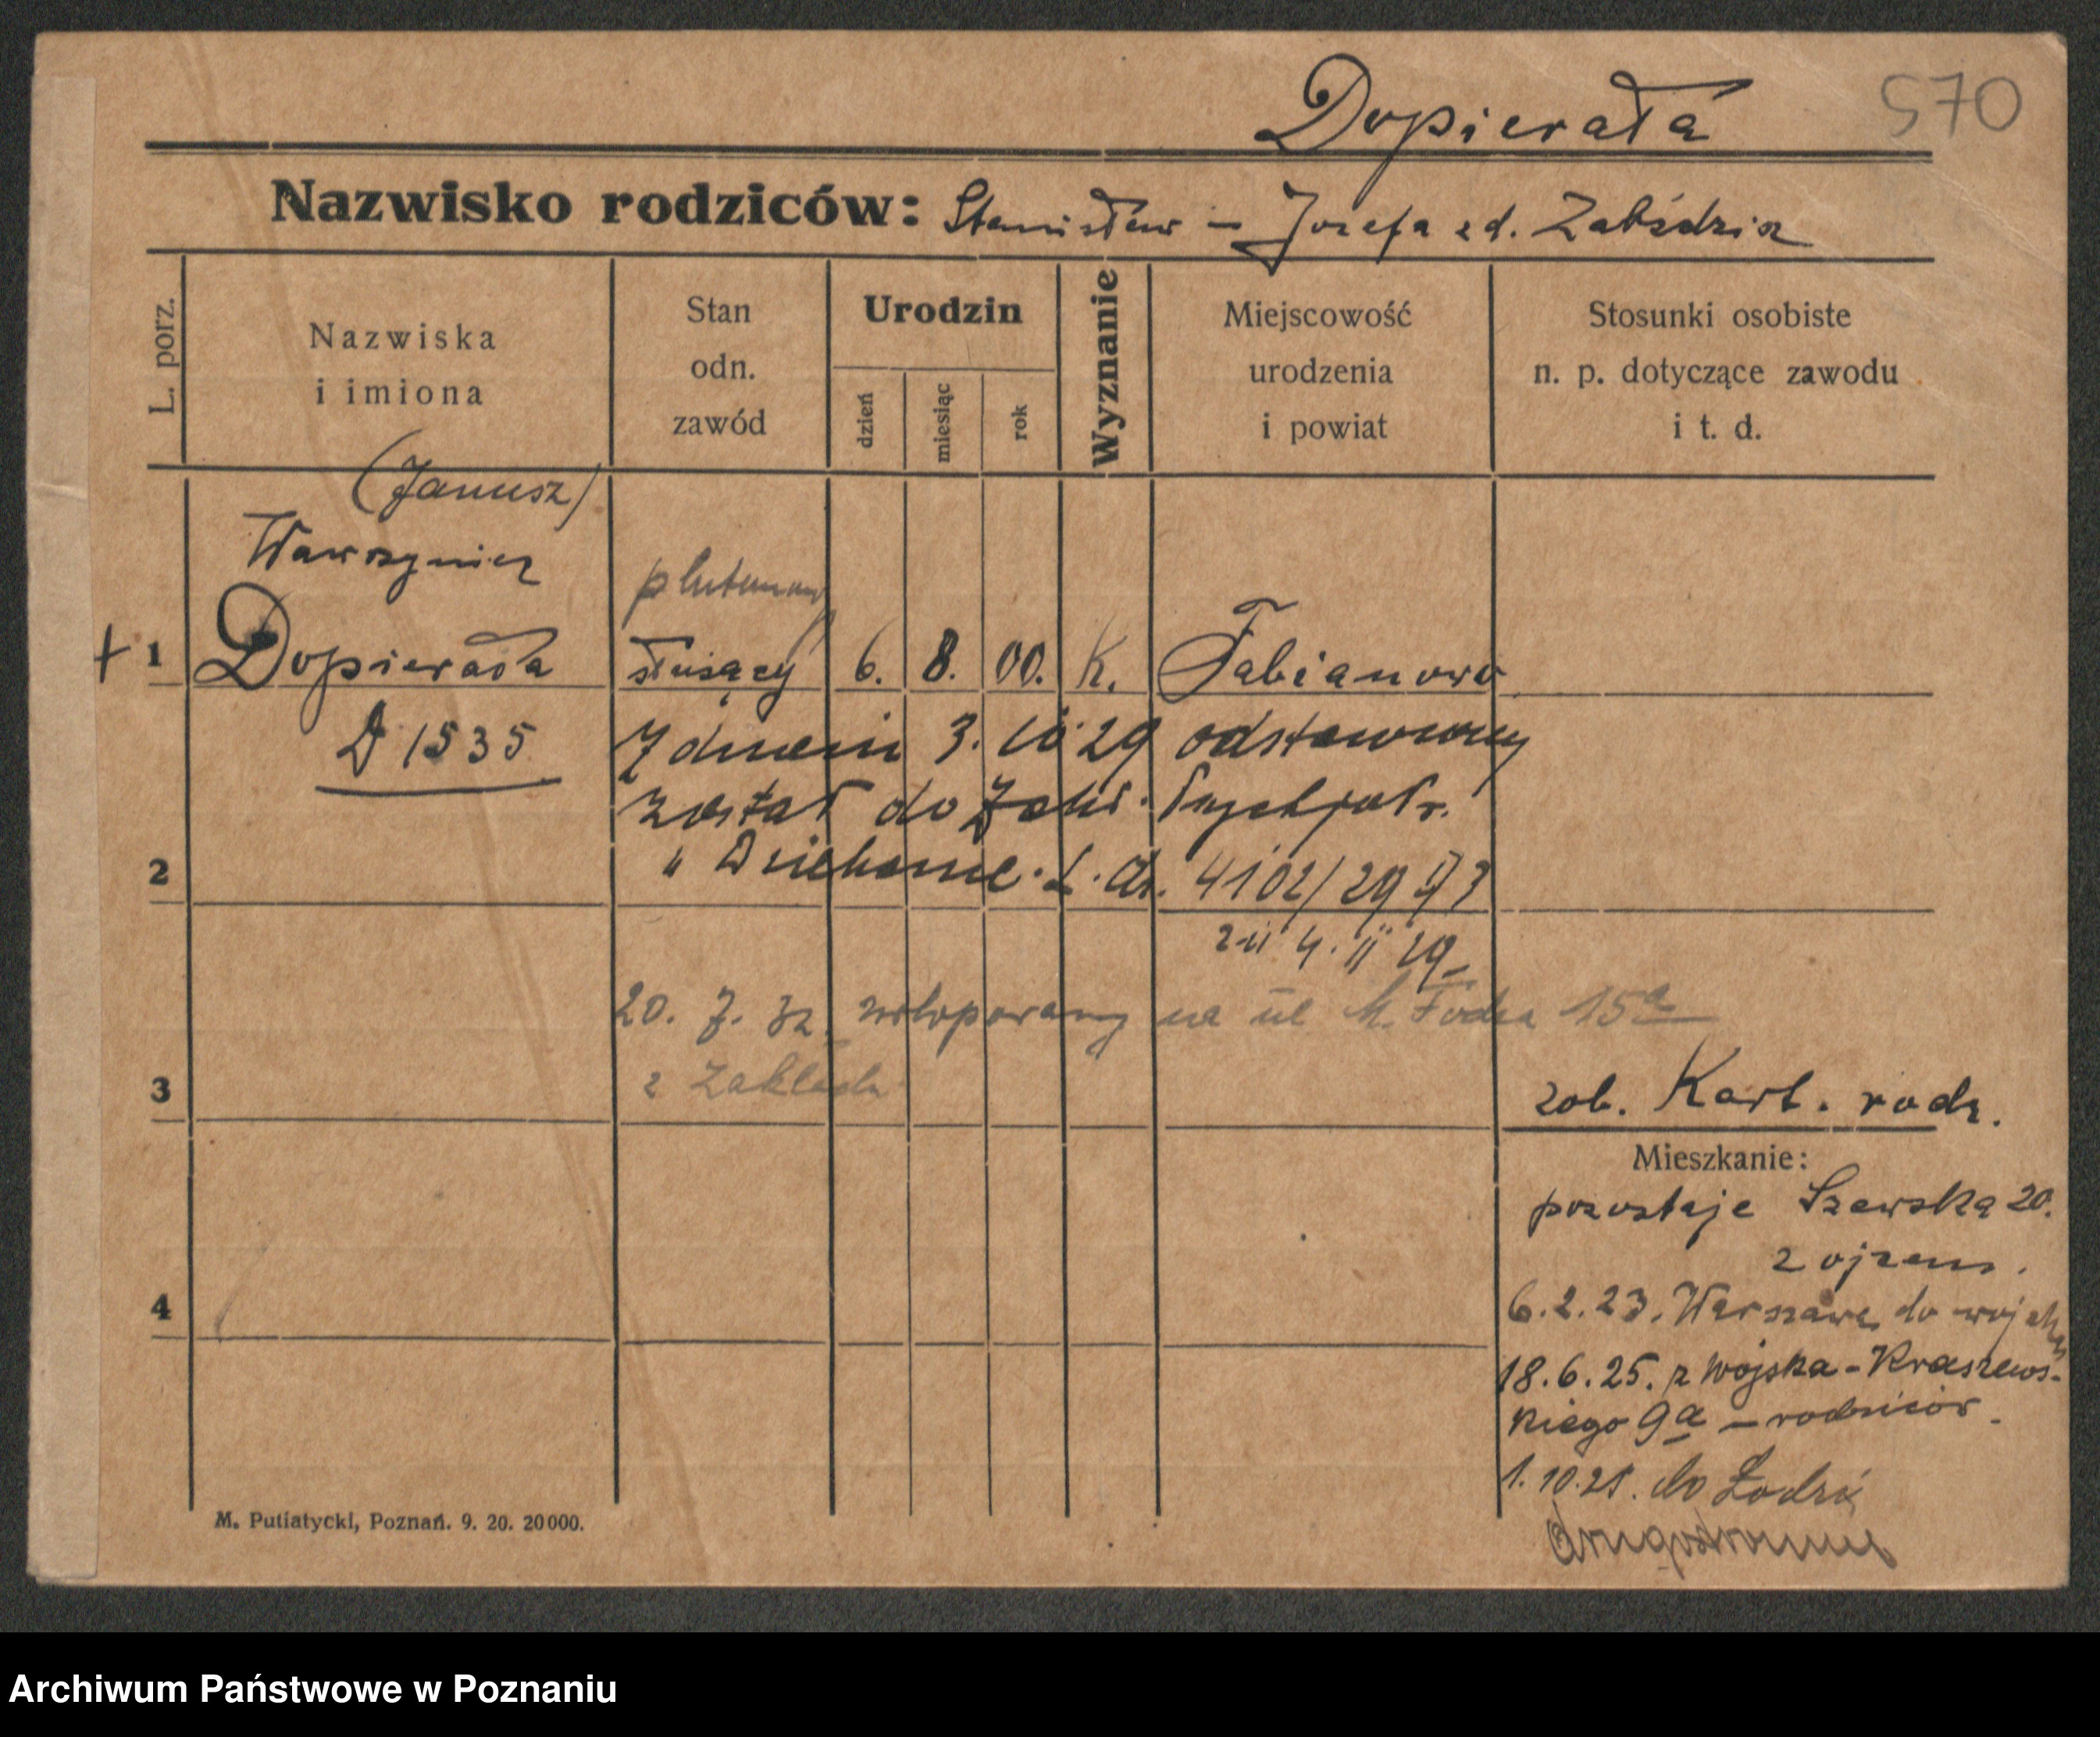 570
Dopierała
Nazwisko rodziców: Stanisław – Jozefa zd.
L. porz.
Nazwiska
i imiona
Stan
odn.
zawód
Urodzin
dzień
miesiąc
rok
Wyznanie
Miejscowość
urodzenia
i powiat
Stosunki osobiste
n. p. dotyczące zawodu
i t. d.
(Janusz)
Wawrzyniec
plutonowy
+ 1 Dopierała służący 6. 8. 00. K. Fabianowo
D 1535
Z dniem 3. 10 29 odstawiony
został do Zakł. Psychjatr.
2
" Dziekanka. L. dz. 4102/29
4. 11 29
20. 7. 32. na ul M. Focha 15a
z Zakładu
3
zob. Kart. rodz.
Mieszkanie:
pozostaje Szewska 20.
z ojcem.
4
6.2.23. Warszawa do wojska
18.6.25. z Wojska - Kraszews-
kiego 9a – rodziców.
1.10.25. do Łodzi
M. Putiatycki, Poznań. 9. 20. 20000.
Archiwum Państwowe w Poznaniu